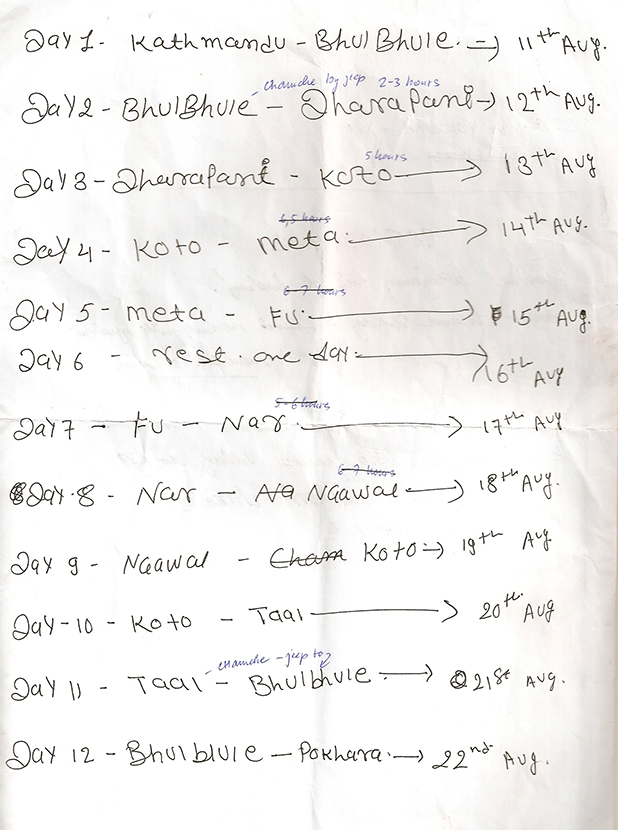 Day 1- Kathmandu - BhulBhule. → 11th Aug.
chamche by jeep 2-3 hours
Day 2 - BhulBhule - Dharapani → 12th Aug.
5 hours
Day 3 - Dharapani - Koto → 13th Aug
6,5 hours
Day 4 - Koto - meta. → 14th Aug.
6-7 hours
Day 5 - meta - FU. → 15th Aug.
Day 6 - rest. one day → 16th Aug
5-6 hours
Day 7 - FU - Nar. → 17th Aug
6-7 hours
Day.8 - Nar - Na Naawal → 18th Aug.
Day 9 - Naawal - Cham Koto → 19th Aug
Day-10 - Koto - Taal → 20th Aug
chamche - jeep to
Day 11 - Taal - Bhulbhule. → 21st Aug.
Day 12 - Bhulblule - Pokhara. → 22nd Aug.